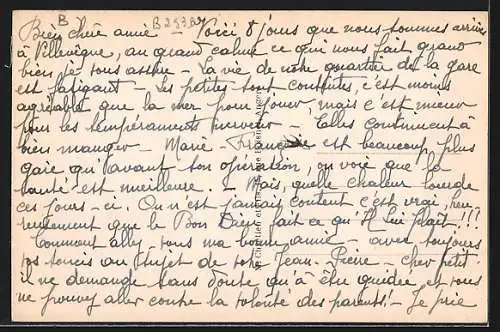 B B253B
Bien chère amie Voici 8 jours que nous sommes arrivés
à Villevigne, au grand calme ce qui nous fait grand
bien je vous assure - La vie de notre quartier de la gare
est fatigant - Les petites sont contentes, c'est moins
agréable que la mer pour jouer, mais c'est mieux
pour les tempéraments nerveux - Elles continuent à
bien manger - Marie-Françoise est beaucoup plus
gaie qu'avant son opération, on voit que la
santé est meilleure. - Mais, quelle chaleur lourde
ces jours-ci. On n'est jamais content c'est vrai, heu-
reusement que le Bon Dieu fait ce qu'Il lui plaît!!!
Comment allez-vous ma bonne amie - avec toujours
vos soucis au sujet de votre Jean-Pierre - cher petit
il ne demande sans doute qu'à être guidé et vous
ne pouvez aller contre la volonté des parents! - Je prie